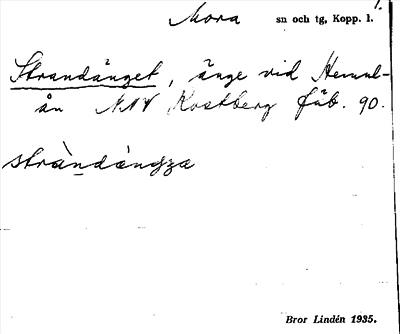 Mora sn och tg, Kopp. l. 1.
Strandänget, änge vid Hemul-
ån NNV Kostberg fäb. 90.
stràndángza
Bror Lindén 1935.